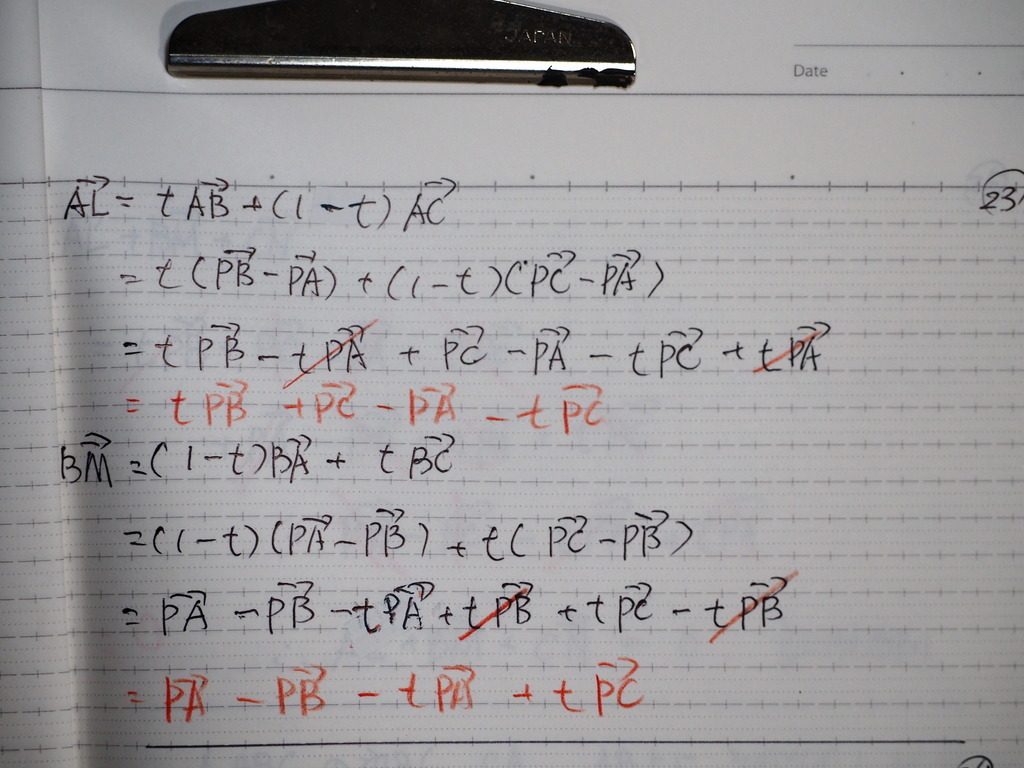 JAPAN
Date
23
$\overrightarrow{AL} = t\overrightarrow{AB} + (1-t)\overrightarrow{AC}$
$= t(\overrightarrow{PB} - \overrightarrow{PA}) + (1-t)(\overrightarrow{PC} - \overrightarrow{PA})$
$= t\overrightarrow{PB} - t\overrightarrow{PA} + \overrightarrow{PC} - \overrightarrow{PA} - t\overrightarrow{PC} + t\overrightarrow{PA}$
$= t\overrightarrow{PB} + \overrightarrow{PC} - \overrightarrow{PA} - t\overrightarrow{PC}$
$\overrightarrow{BM} = (1-t)\overrightarrow{BA} + t\overrightarrow{BC}$
$= (1-t)(\overrightarrow{PA} - \overrightarrow{PB}) + t(\overrightarrow{PC} - \overrightarrow{PB})$
$= \overrightarrow{PA} - \overrightarrow{PB} - t\overrightarrow{PA} + t\overrightarrow{PB} + t\overrightarrow{PC} - t\overrightarrow{PB}$
$= \overrightarrow{PA} - \overrightarrow{PB} - t\overrightarrow{PA} + t\overrightarrow{PC}$